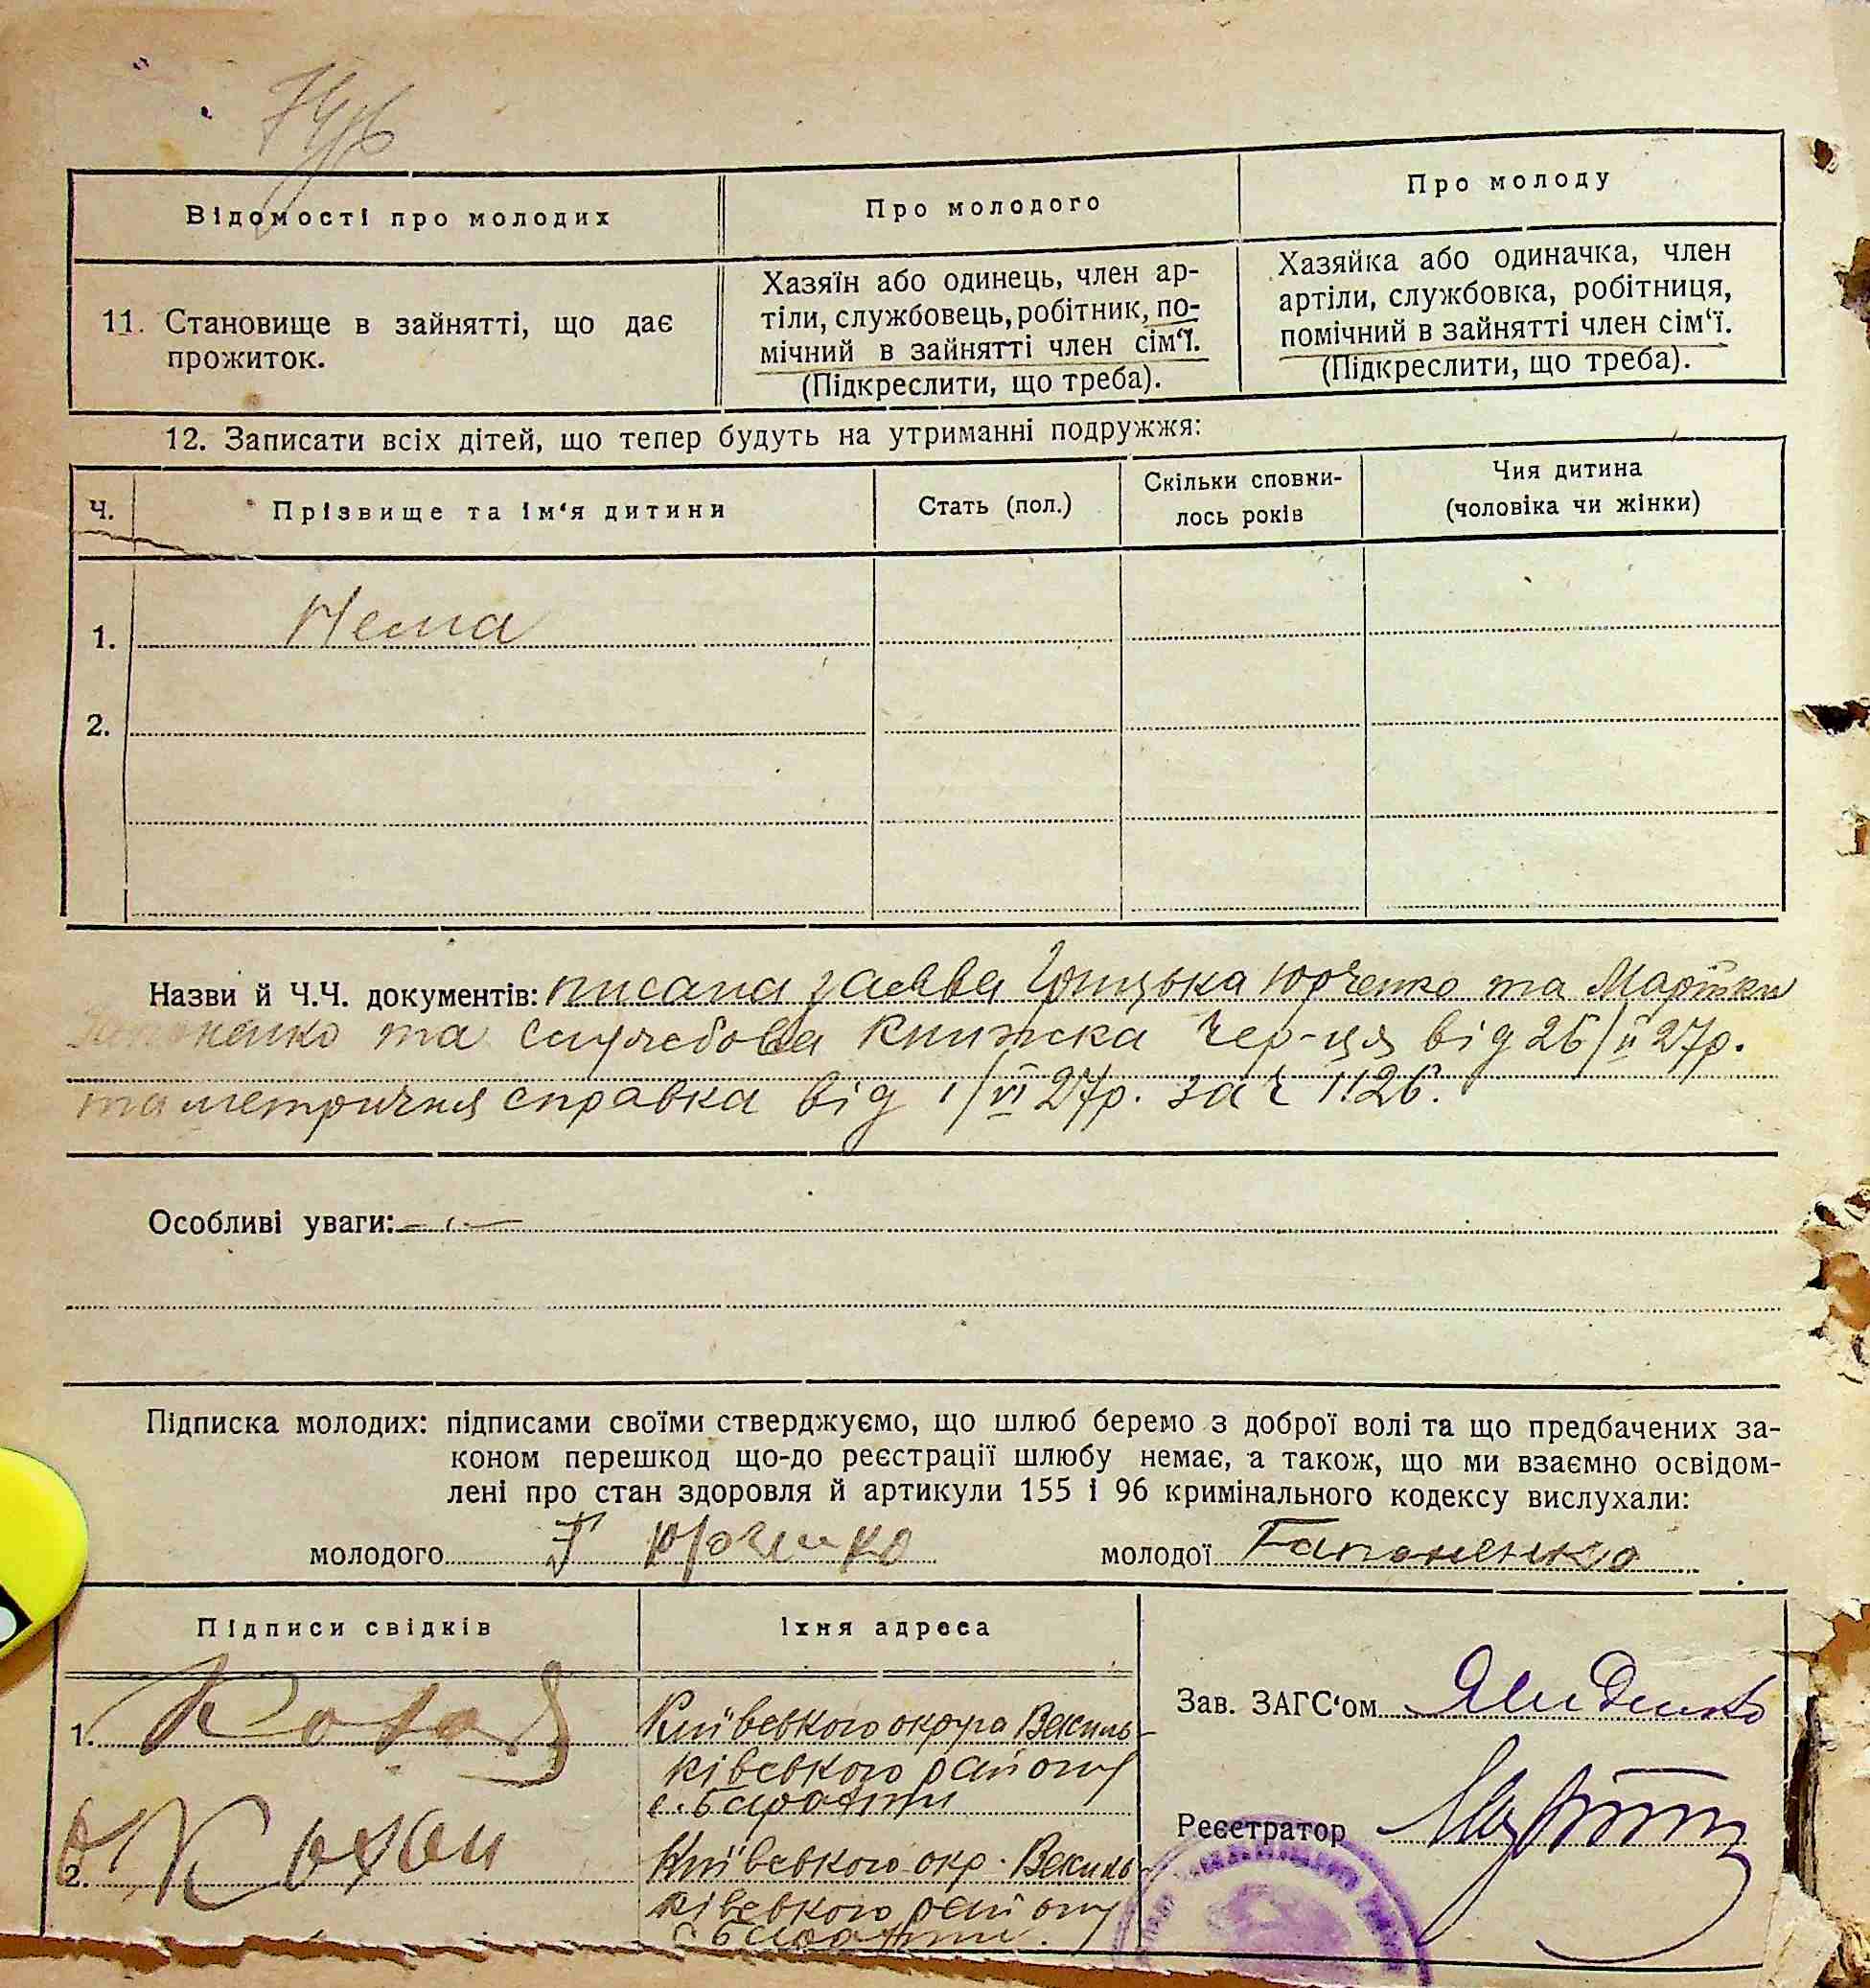 Відомості про молодих
Про молодого
Про молоду
11. Становище в зайнятті, що дає
прожиток.
Хазяїн або одинець, член ар-
тіли, службовець, робітник, по-
мічний в зайнятті член сім‘ї.
(Підкреслити, що треба).
Хазяйка або одиначка, член
артіли, службовка, робітниця,
помічний в зайнятті член сім‘ї.
(Підкреслити, що треба).
12. Записати всіх дітей, що тепер будуть на утриманні подружжя:
Ч.
Прізвище та ім‘я дитини
Стать (пол.)
Скільки сповни-
лось років
Чия дитина
(чоловіка чи жінки)
1. Нема
2.
Назви й Ч.Ч. документів: писана заява Грицька Юрченко та Марійки
та службова книжка Чер-ця від 25/II 27р.
та метрична справка від 1/VI 27р. за ч 1126.
Особливі уваги:
Підписка молодих: підписами своїми стверджуємо, що шлюб беремо з доброї волі та що предбачених за-
коном перешкод що-до реєстрації шлюбу немає, а також, що ми взаємно освідом-
лені про стан здоровля й артикули 155 і 96 кримінального кодексу вислухали:
молодого Г Юрченко молодої Гапоненко
Підписи свідків
Їхня адреса
1.
Київського округа Василь-
ківського району
Зав. ЗАГС‘ом
с.
2. Кохан
Київського окр. Василь
ківського району
Реєстратор